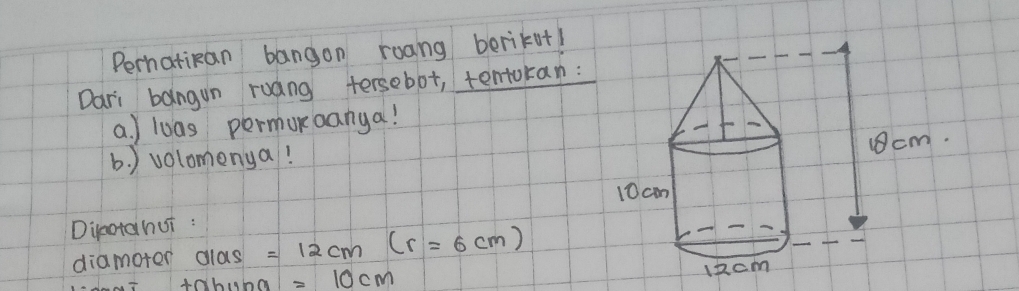 Perhatikan bangun ruang berikut!
Dari bangun ruang tersebut, tentukan:
a.) luas permukaanya!
b.) volumenya!
10cm
18cm.
12cm
Diketahui:
diameter alas = 12cm (r = 6cm)
tabung = 10cm